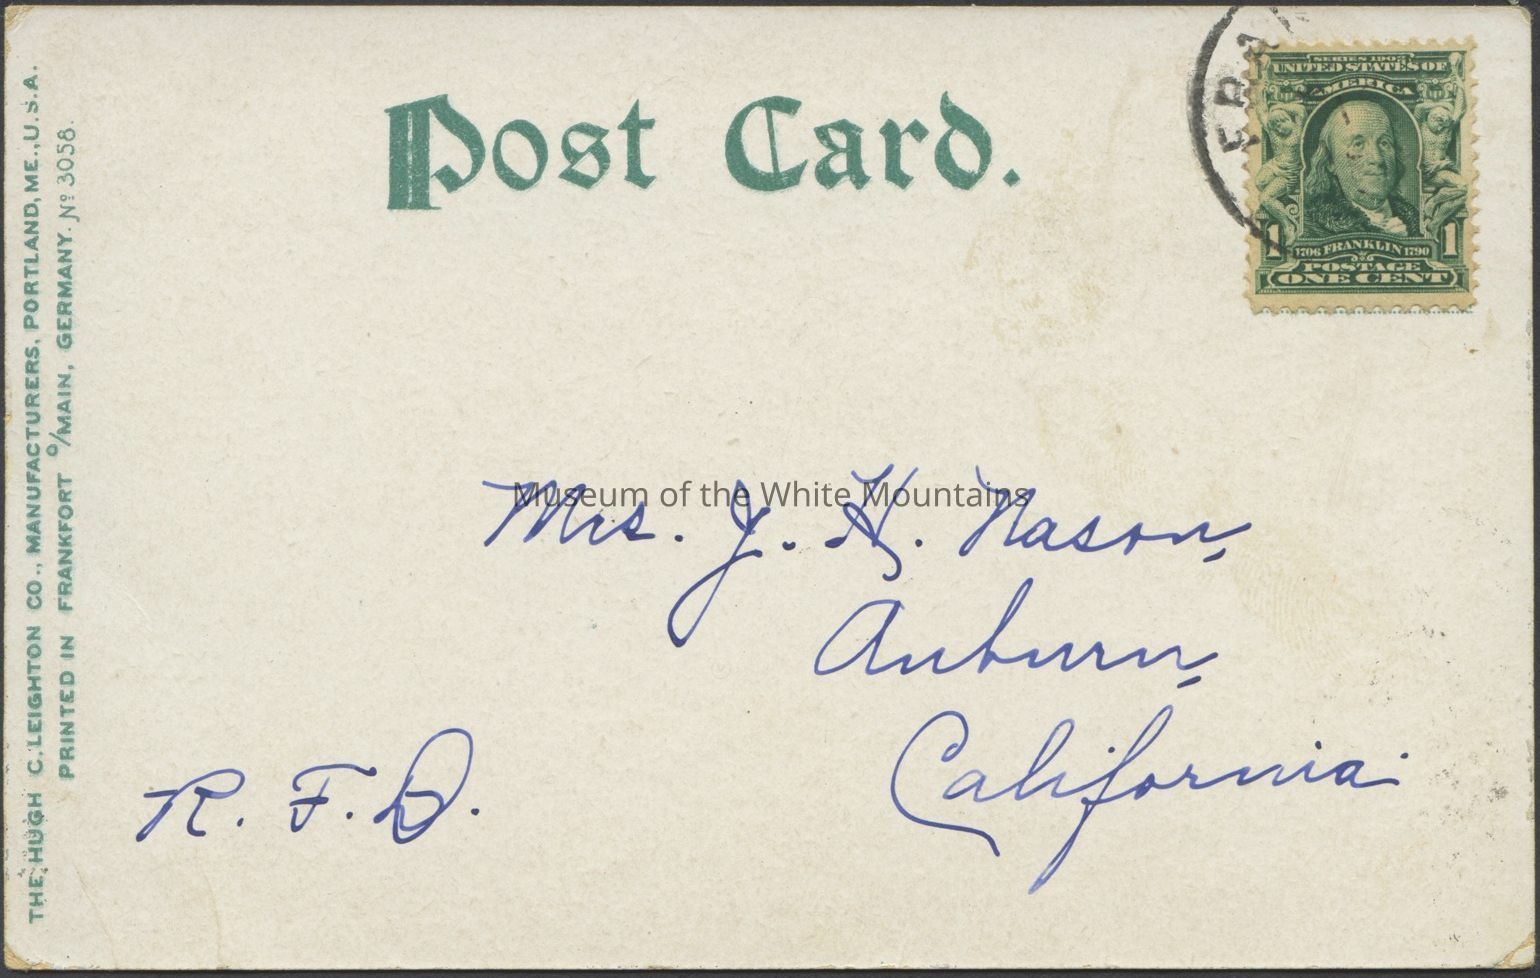 Post Card.
FRAN
SERIES 1902
UNITED STATES OF
AMERICA
1 1
1706 FRANKLIN 1790
POSTAGE
ONE CENT
THE HUGH C. LEIGHTON CO., MANUFACTURERS, PORTLAND, ME., U.S.A.
PRINTED IN FRANKFORT O/MAIN, GERMANY. No 3058.
Museum of the White Mountains
Mrs. J. H. Nason,
Auburn,
California.
R. F. D.